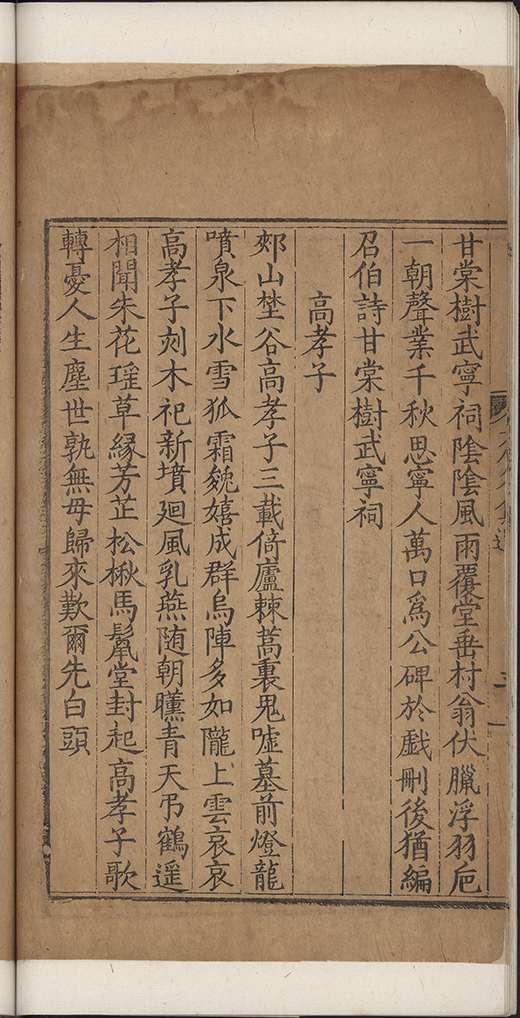 甘棠樹武寧祠陰陰風雨覆堂垂村翁伏臘浮羽巵
一朝聲業千秋思寧人萬口爲公碑於戲刪後猶編
召伯詩甘棠樹武寧祠
高孝子
郟山埜谷高孝子三載倚廬棘蒿裏鬼嘘墓前燈龍
噴泉下水雪狐霜㕙嬉成群烏陣多如隴上雲哀哀
高孝子刻木祀新墳廻風乳燕随朝曛青天弔鶴遥
相聞朱花瑶草緣芳芷松楸馬鬛堂封起高孝子歌
轉憂人生塵世孰無母歸來歎爾先白頭